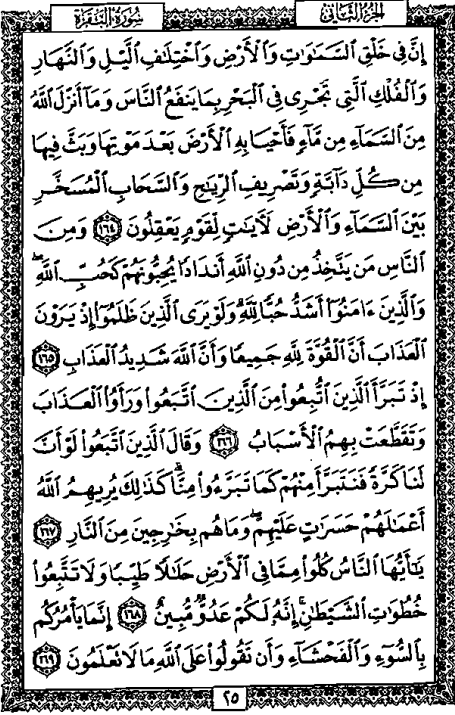 الجزء الثاني
سورة البقرة
إِنَّ فِي خَلْقِ ٱلسَّمَٰوَٰتِ وَٱلْأَرْضِ وَٱخْتِلَٰفِ ٱلَّيْلِ وَٱلنَّهَارِ
وَٱلْفُلْكِ ٱلَّتِي تَجْرِي فِي ٱلْبَحْرِ بِمَا يَنفَعُ ٱلنَّاسَ وَمَآ أَنزَلَ ٱللَّهُ
مِنَ ٱلسَّمَآءِ مِن مَّآءٍ فَأَحْيَا بِهِ ٱلْأَرْضَ بَعْدَ مَوْتِهَا وَبَثَّ فِيهَا
مِن كُلِّ دَآبَّةٍ وَتَصْرِيفِ ٱلرِّيَٰحِ وَٱلسَّحَابِ ٱلْمُسَخَّرِ
بَيْنَ ٱلسَّمَآءِ وَٱلْأَرْضِ لَأٓيَٰتٍ لِّقَوْمٍ يَعْقِلُونَ ١٦٤ وَمِنَ
ٱلنَّاسِ مَن يَتَّخِذُ مِن دُونِ ٱللَّهِ أَندَادًا يُحِبُّونَهُمْ كَحُبِّ ٱللَّهِۖ
وَٱلَّذِينَ ءَامَنُوٓا۟ أَشَدُّ حُبًّا لِّلَّهِۗ وَلَوْ يَرَى ٱلَّذِينَ ظَلَمُوٓا۟ إِذْ يَرَوْنَ
ٱلْعَذَابَ أَنَّ ٱلْقُوَّةَ لِلَّهِ جَمِيعًا وَأَنَّ ٱللَّهَ شَدِيدُ ٱلْعَذَابِ ١٦٥
إِذْ تَبَرَّأَ ٱلَّذِينَ ٱتُّبِعُوا۟ مِنَ ٱلَّذِينَ ٱتَّبَعُوا۟ وَرَأَوُا۟ ٱلْعَذَابَ
وَتَقَطَّعَتْ بِهِمُ ٱلْأَسْبَابُ ١٦٦ وَقَالَ ٱلَّذِينَ ٱتَّبَعُوا۟ لَوْ أَنَّ
لَنَا كَرَّةً فَنَتَبَرَّأَ مِنْهُمْ كَمَا تَبَرَّءُوا۟ مِنَّاۗ كَذَٰلِكَ يُرِيهِمُ ٱللَّهُ
أَعْمَٰلَهُمْ حَسَرَٰتٍ عَلَيْهِمْۖ وَمَا هُم بِخَٰرِجِينَ مِنَ ٱلنَّارِ ١٦٧
يَٰٓأَيُّهَا ٱلنَّاسُ كُلُوا۟ مِمَّا فِي ٱلْأَرْضِ حَلَٰلًا طَيِّبًا وَلَا تَتَّبِعُوا۟
خُطُوَٰتِ ٱلشَّيْطَٰنِۚ إِنَّهُۥ لَكُمْ عَدُوٌّ مُّبِينٌ ١٦٨ إِنَّمَا يَأْمُرُكُم
بِٱلسُّوٓءِ وَٱلْفَحْشَآءِ وَأَن تَقُولُوا۟ عَلَى ٱللَّهِ مَا لَا تَعْلَمُونَ ١٦٩
٢٥